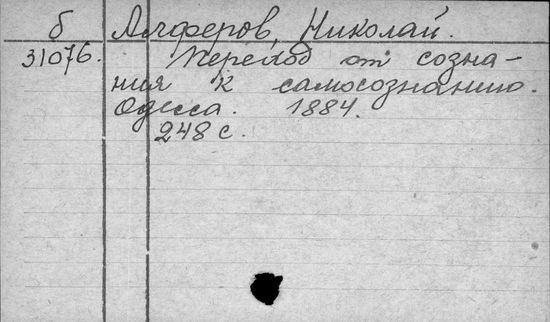 б Алферов, Николай.
31076. Переход от созна-
ния к самосознанию.
Одесса. 1884.
248 с.